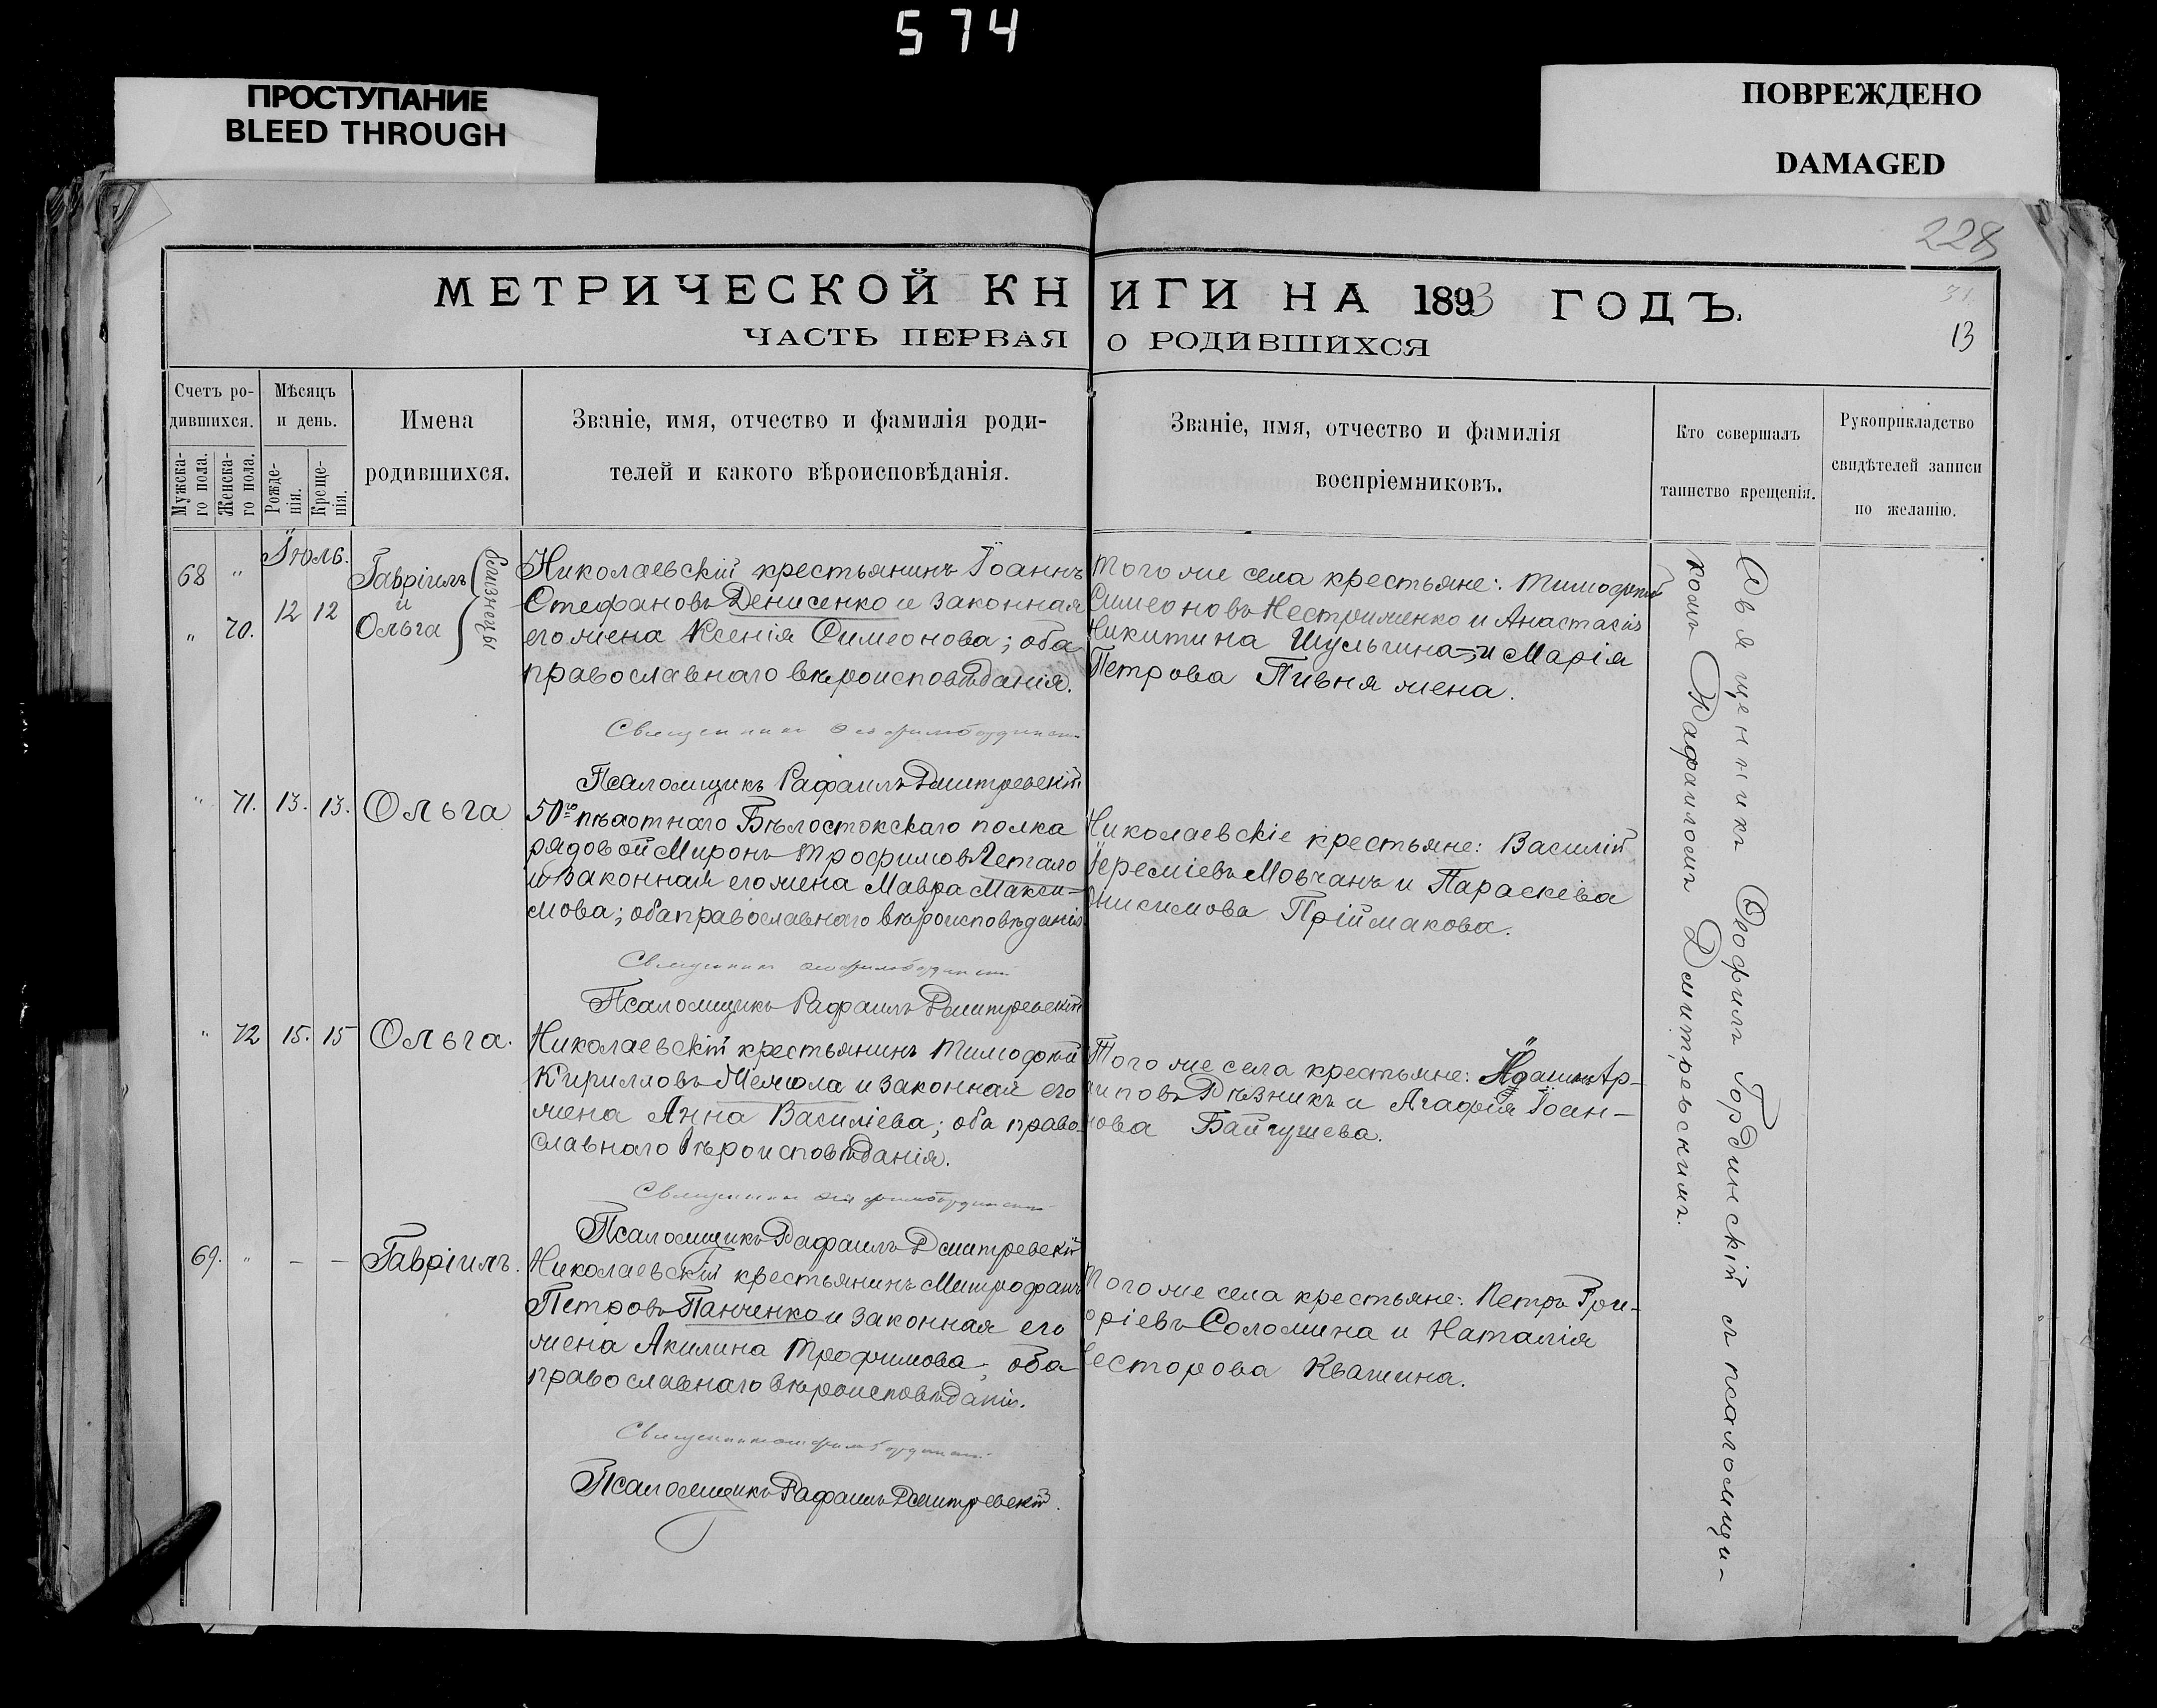 574
ПРОСТУПАНИЕ
BLEED THROUGH
ПОВРЕЖДЕНО
DAMAGED
228
МЕТРИЧЕСКОЙ КНИГИ НА 1893 ГОДЪ.
31.
ЧАСТЬ ПЕРВАЯ О РОДИВШИХСЯ
13
Счетъ ро-
дившихся.
Мужска-
го пола.
Женска-
го пола.
Мѣсяцъ
и день.
Рожде-
нія.
Креще-
нія.
Имена
родившихся.
Званіе, имя, отчество и фамилія роди-
телей и какого вѣроисповѣданія.
Званіе, имя, отчество и фамилія
воспріемниковъ.
Кто совершалъ
таинство крещенія.
Рукоприкладство
свидѣтелей записи
по желанію.
Іюль.
68 "
" 70.
12 12
Гавріилъ
и
Ольга
близнецы
Николаевскій крестьянинъ Іоаннъ
Стефановъ Денисенко и законная
его жена Ксенія Симеонова; оба
православнаго вѣроисповѣданія.
Того же села крестьяне: Тимофей
Симеоновъ Нестрименко и Анастасія
Никитина Шульгина, и Марія
Петрова Пивня жена.
Священникъ Ѳеофилъ Гординскій
Псаломщикъ Рафаилъ Дмитревскій
" 71. 13. 13. Ольга
50го пѣхотнаго Бѣлостокскаго полка
рядовой Миронъ Трофимовъ Летало
и законная его жена Мавра Макси-
мова; оба православнаго вѣроисповѣданія
Николаевскіе крестьяне: Василій
Іереміевъ Мовчанъ и Параскева
Онисимова Пріймакова.
Священникъ Ѳеофилъ Гординскій
Псаломщикъ Рафаилъ Дмитревскій
" 72 15. 15 Ольга.
Николаевскій крестьянинъ Тимофей
Кирилловъ и законная его
жена Анна Василіева; оба право-
славнаго вѣроисповѣданія.
Того же села крестьяне: Ар-
хиповъ Рѣзникъ и Агафія Іоан-
нова Байгушева.
Священникъ Ѳеофилъ Гординскій
Псаломщикъ Рафаилъ Дмитревскій
69. " – – Гавріилъ.
Николаевскій крестьянинъ Митрофанъ
Петровъ Панченко и законная его
жена Акилина Трофимова; оба
православнаго вѣроисповѣданія.
Того же села крестьяне: Петръ Гри-
горіевъ Соломина и Наталія
Несторова Квашина.
Священникъ Ѳеофилъ Гординскій
Псаломщикъ Рафаилъ Дмитревскій.
Священникъ Ѳеофилъ Гординскій съ псаломщи-
комъ Рафаиломъ Дмитревскимъ.